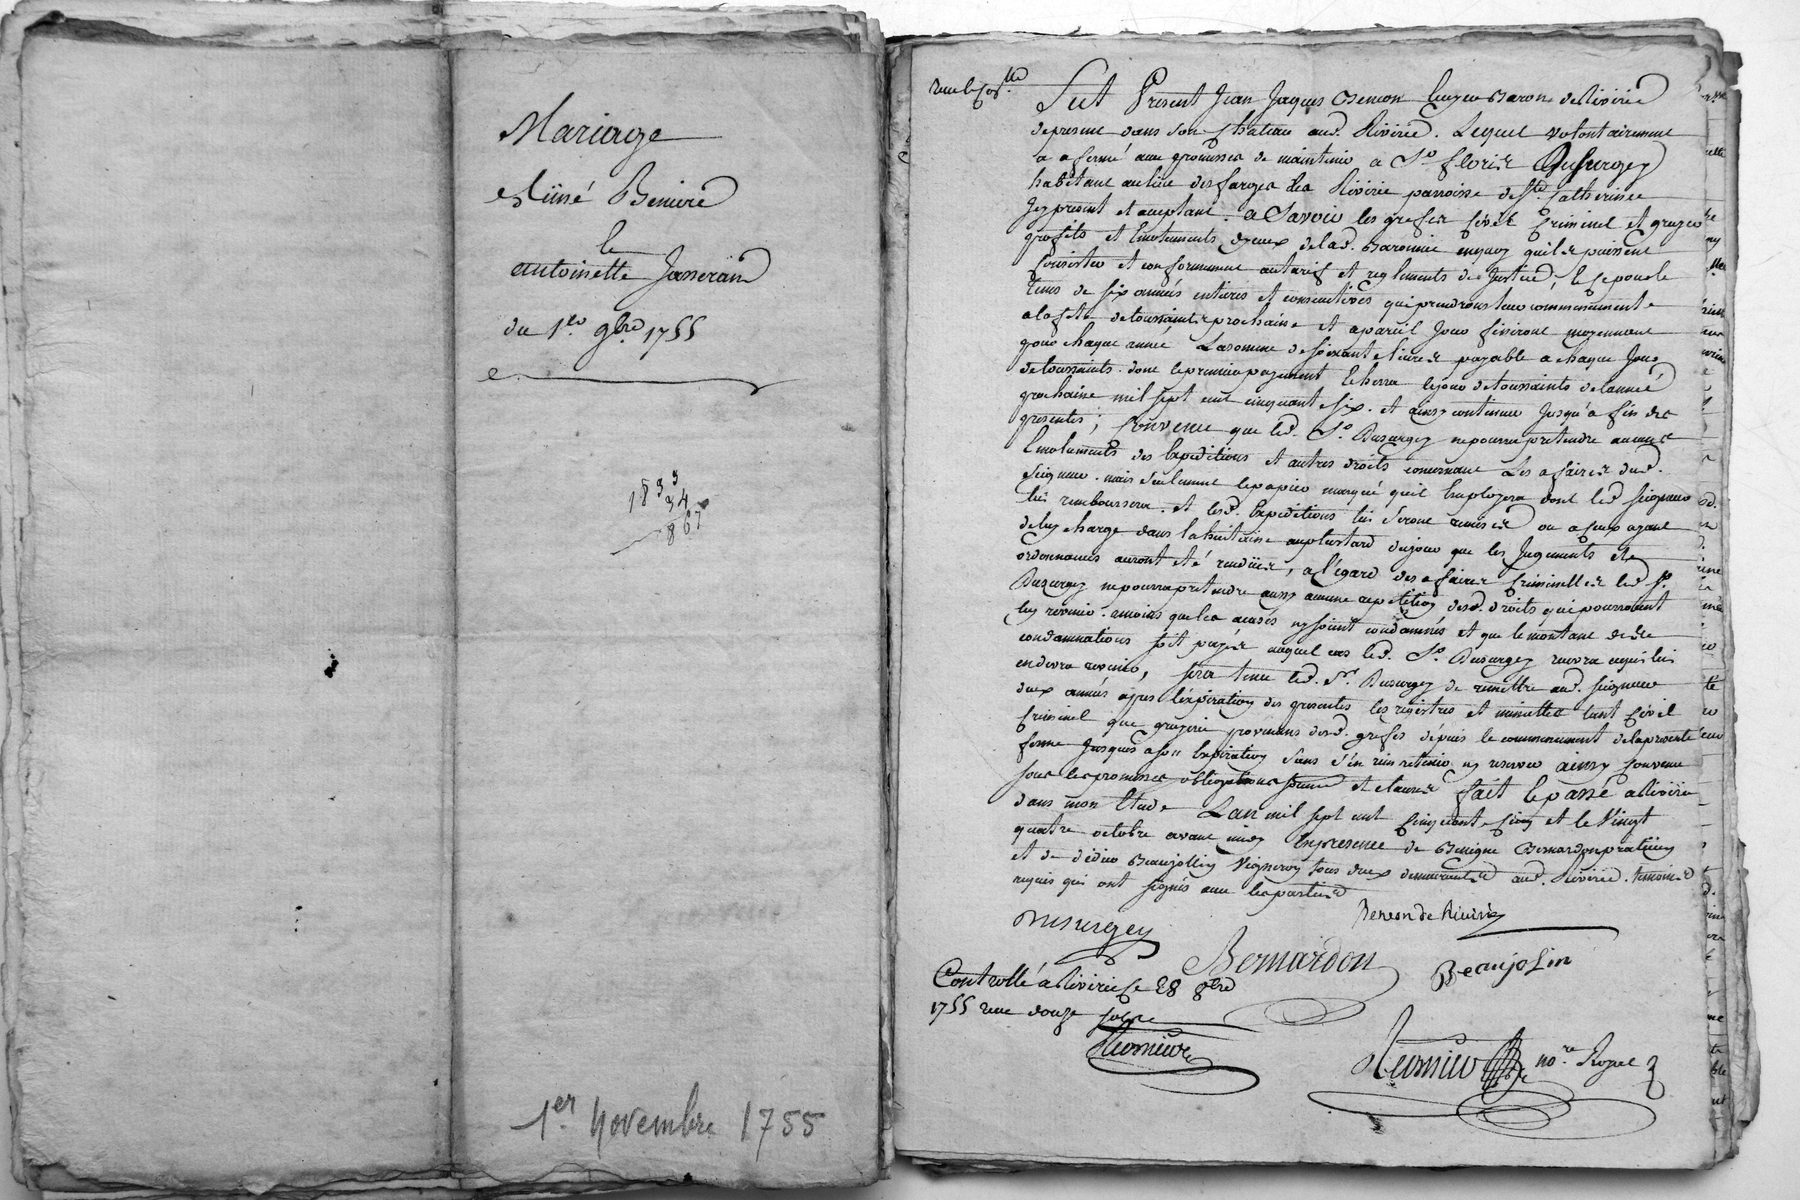 Mariage
Benière
le
antoinette Jasserand
du 1er 9bre 1755
1833
34
867
1er Novembre 1755
Fut Present Jean Jaques Benson Baron de Riviried
de present dans son chateau aud. Riviried. Lequel volontairement
a afermé avec promesses de maintenir a Sr fleurie Dusurgey
habitant au lieu des farges de Rivirie parroisse de Ste Catherine
Jcy present et aceptant. a Savoir les grefes Civil Criminel et gruyer
profits et Emoluments d'yceux de lad. Baronnie en quoy quils puissent
Consister et conformement au tarif et reglments de Justice, & ce pour le
tems de six années entieres et consecutives qui prendront leur commencement
a la fete de toussaints prochaine et a pareil Jour finiront moyennant
pour chaque année La somme de soixante livres payable a chaque Jour
de toussaints. dont le premier payement Echerra le jour de toussaints de l'année
prochaine mil sept cent cinquante six. et ainsy continuer Jusqu'a fin des
presentes; Convenu que led. Sr Dusurgey ne pourra pretendre aucuns
Emoluments des Expeditions et autres droits concernant Les afaires dud.
Seigneur. mais seulement le papier marqué qu'il Employera dont led. seigneur
lui remboursera. et lesd. Expeditions lui seront remises ou a ceux ayant
de luy charge dans la huitaine au plus tard du jour que les Jugements et
ordonnances auront eté rendues, a l'egard des afaires Criminelles led. Sr
Dusurgey ne pourra pretendre aussy aucune repetition desd. droits qui pourroient
luy revenir. amoins que les acusés ny soient condamnés et que le montant desd
condamnations soit payé auquel cas led. Sr Dusurgey recevra ce qui lui
en devra revenir, sera tenu led. Sr Dusurgey de remettre aud. seigneur
deux années apres l'expiration des presentes les registres et minuttes tant Civil
Criminel que gruyerie provenans desd. grefes depuis le commencement de la presente
ferme Jusques a son Expiration sans s'en rien retenir ny reserver ainsy Convenu
sous les promesses obligations et clauses fait & passé a Rivirie
dans mon Etude L'an mil sept cent Cinquante Cinq et le Vingt
quatre octobre avant midy En presence de Benigne Bernardon praticien
et de Beaujollin Vigneron tous deux demeurants aud. Riviried. temoins
requis qui ont signés avec les parties
Dusurgey
Benson de Rivirie
Bernardon
Beaujolin
Controllé a Rivirie le 28 8bre
1755 reçu douze sols
nore Royal